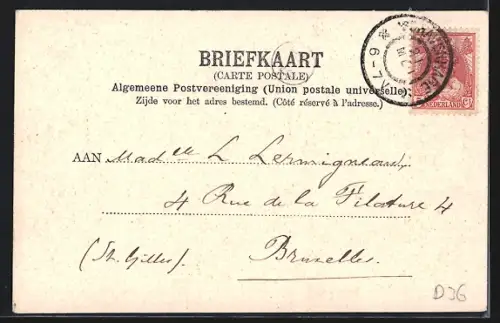 BRIEFKAART
(CARTE POSTALE)
Algemeene Postvereeniging (Union postale universelle).
Zijde voor het adres bestemd. (Côté réservé à l'adresse.)
NEDERLAND
7-9
AAN Madelle L
4 Rue de la Filature 4
(St. Gilles).
Bruxelles.
D36